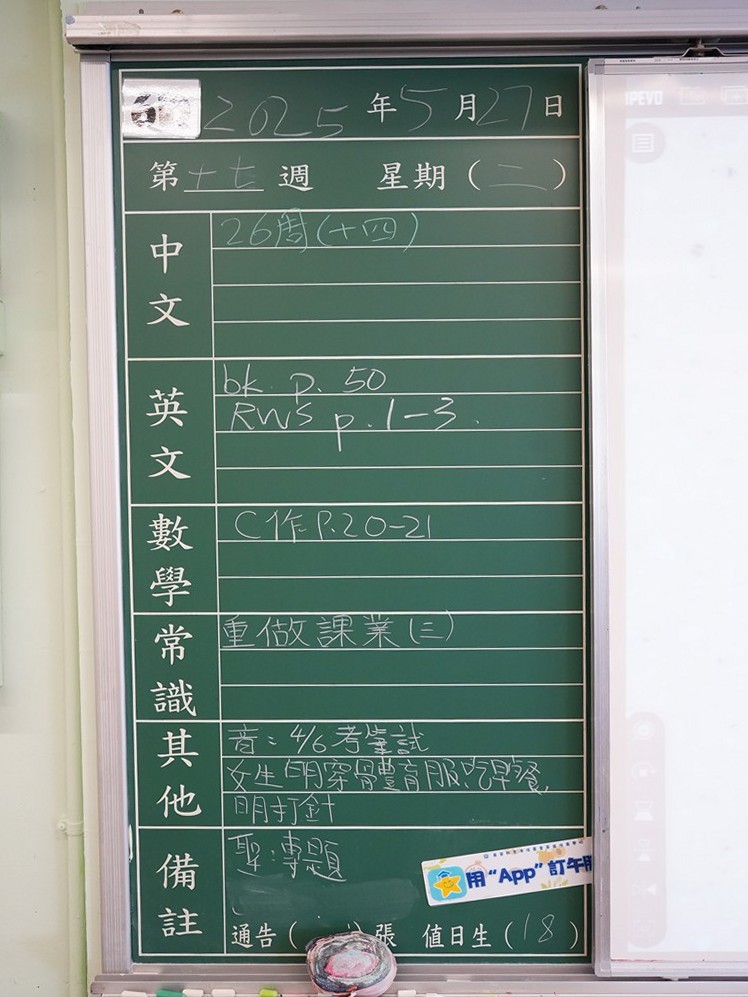 2025年5月27日
第十七週 星期(二)
中文
26周(十四)
英文
bk. p. 50
RWS p. 1-3.
數學
C作P.20-21
常識
重做課業(三)
其他
音：4/6考筆試
女生明穿體育服,吃早餐,
明打針
備註
聖：專題
用“App”訂午
通告( )張 值日生(18)
IPEVO